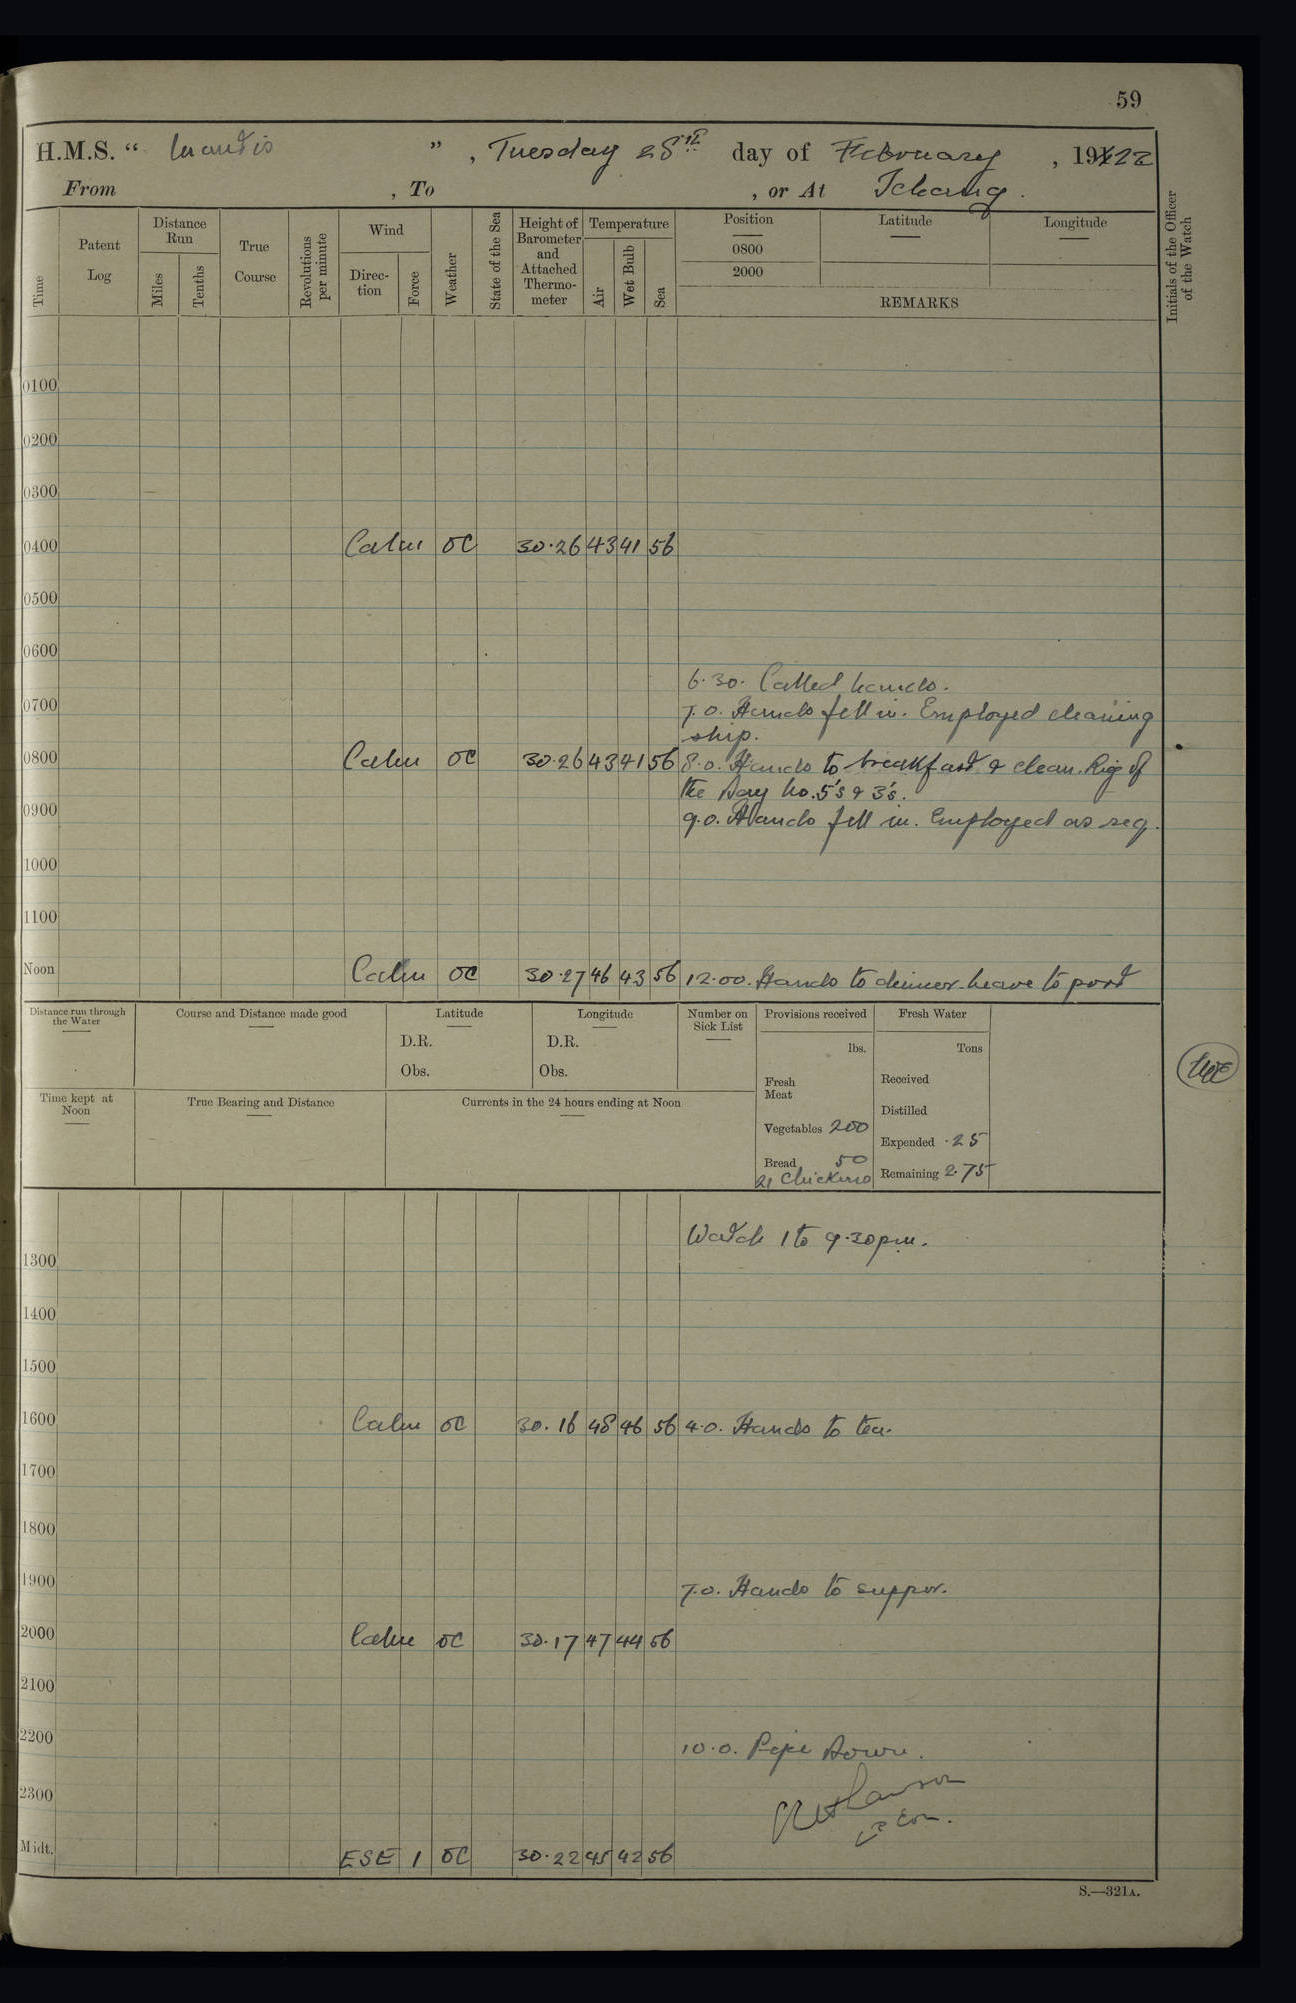 59
H.M.S. " Mantis " , Tuesday 28th day of February , 1922
From , To , or At Ichang.
Time
Patent Log
Distance Run
Miles
Tenths
True Course
Revolutions per minute
Wind
Direc-tion
Force
Weather
State of the Sea
Height of Barometer and Attached Thermo-meter
Temperature
Air
Wet Bulb
Sea
Position
0800
2000
Latitude
Longitude
REMARKS
Initials of the Officer of the Watch
0100
0200
0300
0400 Calm oc 30.26 43 41 56
0500
0600
6.30. Called hands.
0700 7.0. Hands fell in. Employed cleaning
ship.
0800 Calm oc 30.26 43 41 56 8.0. Hands to breakfast & clean. Rig of
the day No. 5's & 3's.
0900 9.0. Hands fell in. Employed as req.
1000
1100
Noon Calm oc 30.27 46 43 56 12.00. Hands to dinner. Leave to port
Distance run through the Water
Course and Distance made good
Latitude
D.R.
Obs.
Longitude
D.R.
Obs.
Number on Sick List
Provisions received
lbs.
Fresh Meat
Vegetables 200
Bread 50
21 Chickens
Fresh Water
Tons
Received
Distilled
Expended .25
Remaining 2.75
Time kept at Noon
True Bearing and Distance
Currents in the 24 hours ending at Noon
Watch 1 to 9.30pm.
1300
1400
1500
1600 Calm oc 30.16 48 46 56 4.0. Hands to tea.
1700
1800
1900 7.0. Hands to supper.
2000 Calm oc 30.17 47 44 56
2100
2200 10.0. Pipe Down.
2300
Lt Com.
Midt. ESE 1 oc 30.22 45 42 56
S.—321A.